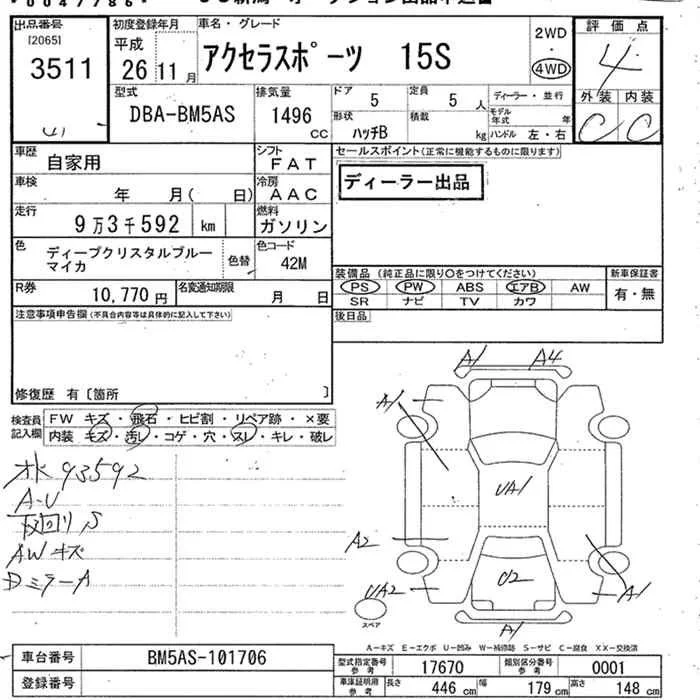 出品番号
[2065]
3511
初度登録年月
平成
26 11 月
車名・グレード
アクセラスポーツ 15S
2WD
・
4WD
評価点
4
外装 内装
C C
型式
DBA-BM5AS
排気量
1496
CC
ドア 5
定員 5 人
ディーラー・並行
形状 ハッチB
積載 kg
モデル年式 年
ハンドル 左・右
車歴 自家用
シフト FAT
車検 年 月( 日)
冷房 AAC
走行 9万3千592 km
燃料 ガソリン
色 ディープクリスタルブルーマイカ
色替
色コード 42M
R券 10,770 円
名変通知期限 月 日
セールスポイント(正常に機能するものに限ります)
ディーラー出品
装備品(純正品に限り○をつけてください)
PS PW ABS エアB AW
SR ナビ TV カワ
新車保証書
有・無
後日品
注意事項申告欄(不具合内容等は具体的に記入して下さい)
修復歴 有〔箇所 〕
検査員記入欄
FW キズ・飛石・ヒビ割・リペア跡・×要
内装 キズ・汚レ・コゲ・穴・スレ・キレ・破レ
93592
A-U
下回り S
AWキズ
DミラーA
A1 A4
A1
UA1
A2
UA2
U2
A1
A1
スペア
A-キズ E-エクボ U-凹み W-補修跡 S-サビ C-腐食 XX-交換済
車台番号 BM5AS-101706
登録番号
型式指定番号 参考 17670
類別区分番号 参考 0001
車庫証明用 参考 長さ 446 cm 幅 179 cm 高さ 148 cm